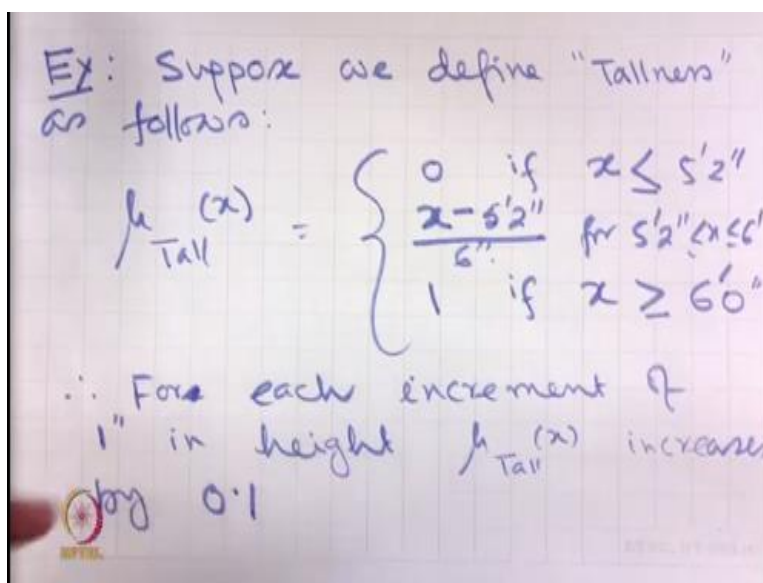 Ex: Suppose we define "Tallness"
as follows:
μ_Tall (x) = { 0 if x ≤ 5'2"
x - 5'2" / 6" for 5'2" < x ≤ 6'
1 if x ≥ 6'0"
∴ For each increment of
1" in height μ_Tall (x) increases
by 0.1
NPTEL